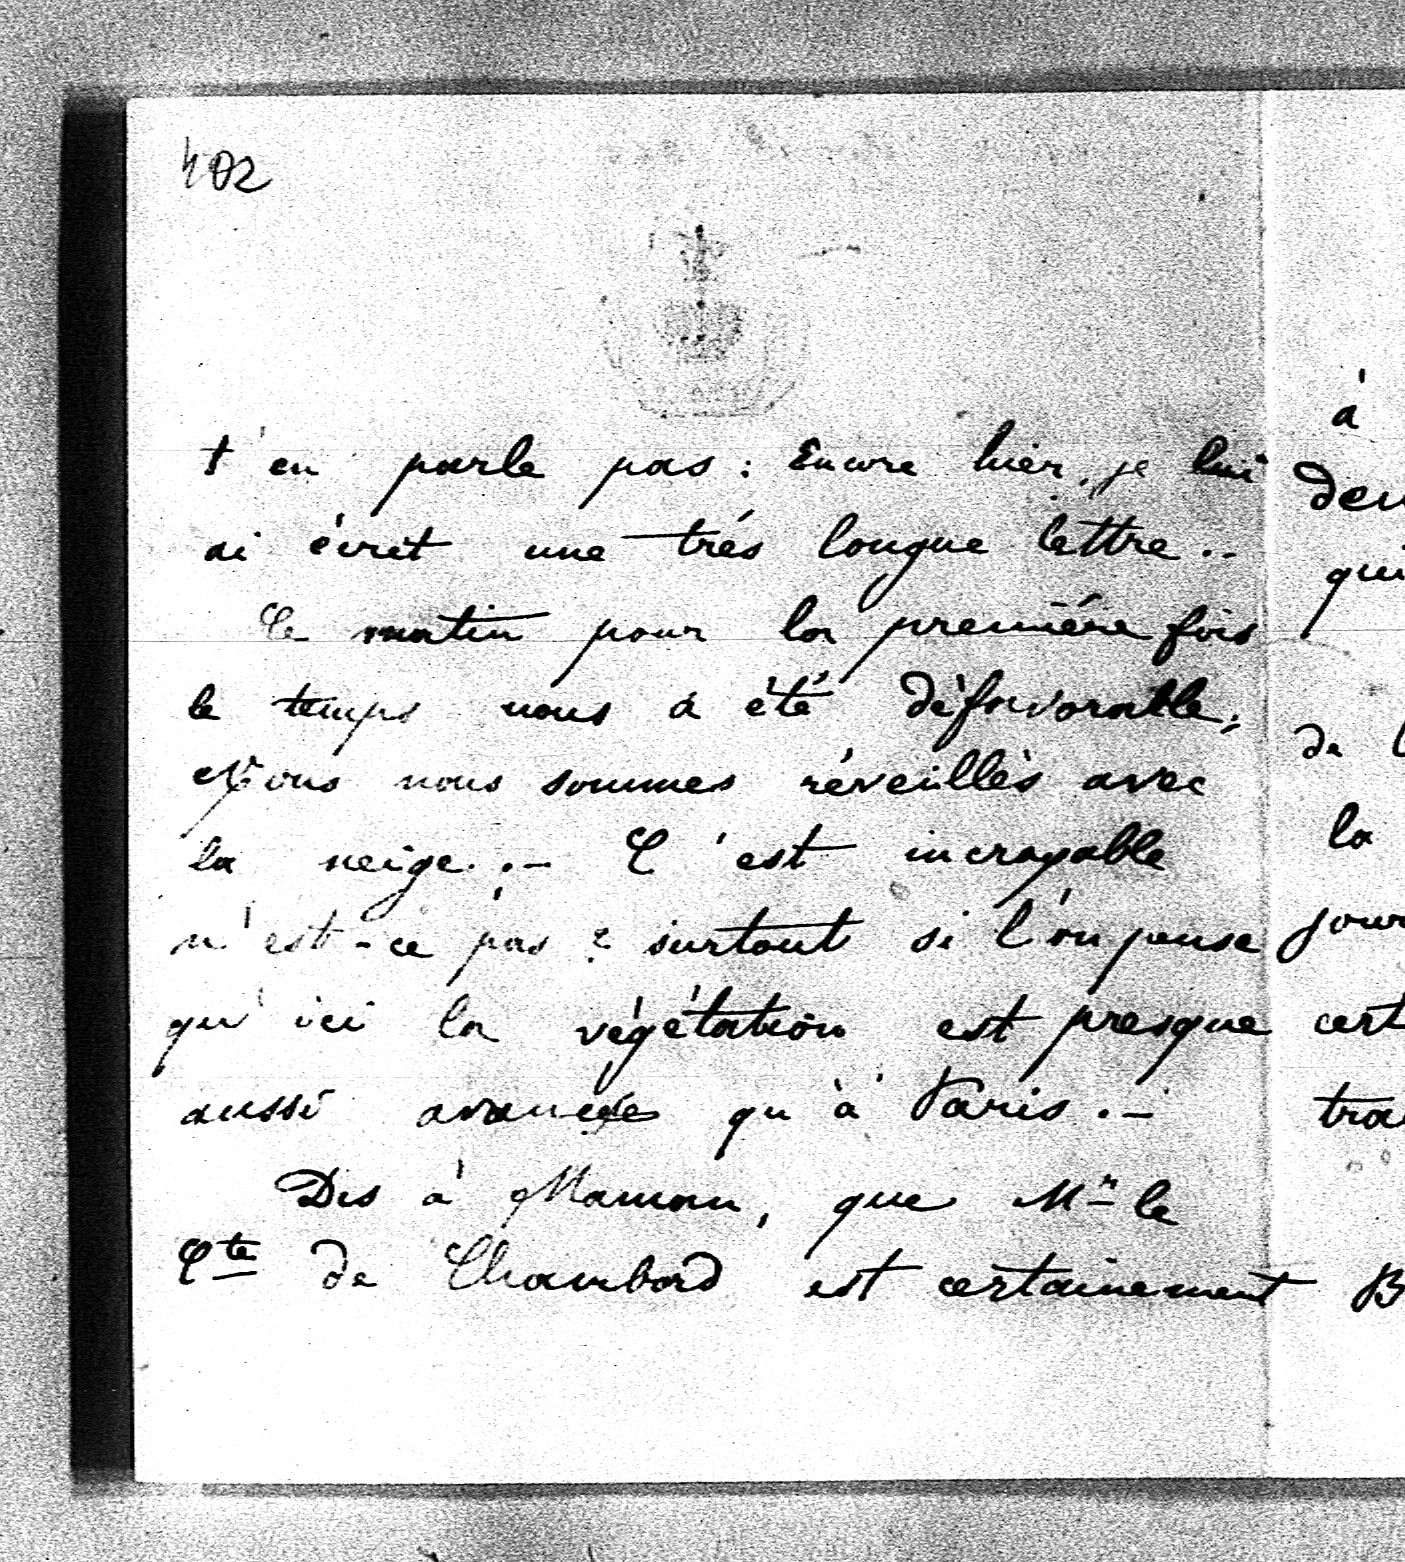 402
t'en parle pas : Encore hier, je lui
ai écrit une trés longue lettre ..
Ce matin pour la premiére fois
le temps nous a été défavorable ;
Nous nous sommes réveillés avec
la neige .- C'est incroyable
n'est-ce pas ? surtout si l'on pense
qu'ici la végétation est presque
aussi avancée qu'à Paris .-
Dis à Maman, que Mr le
Cte de Chambord est certainement
à
de
la